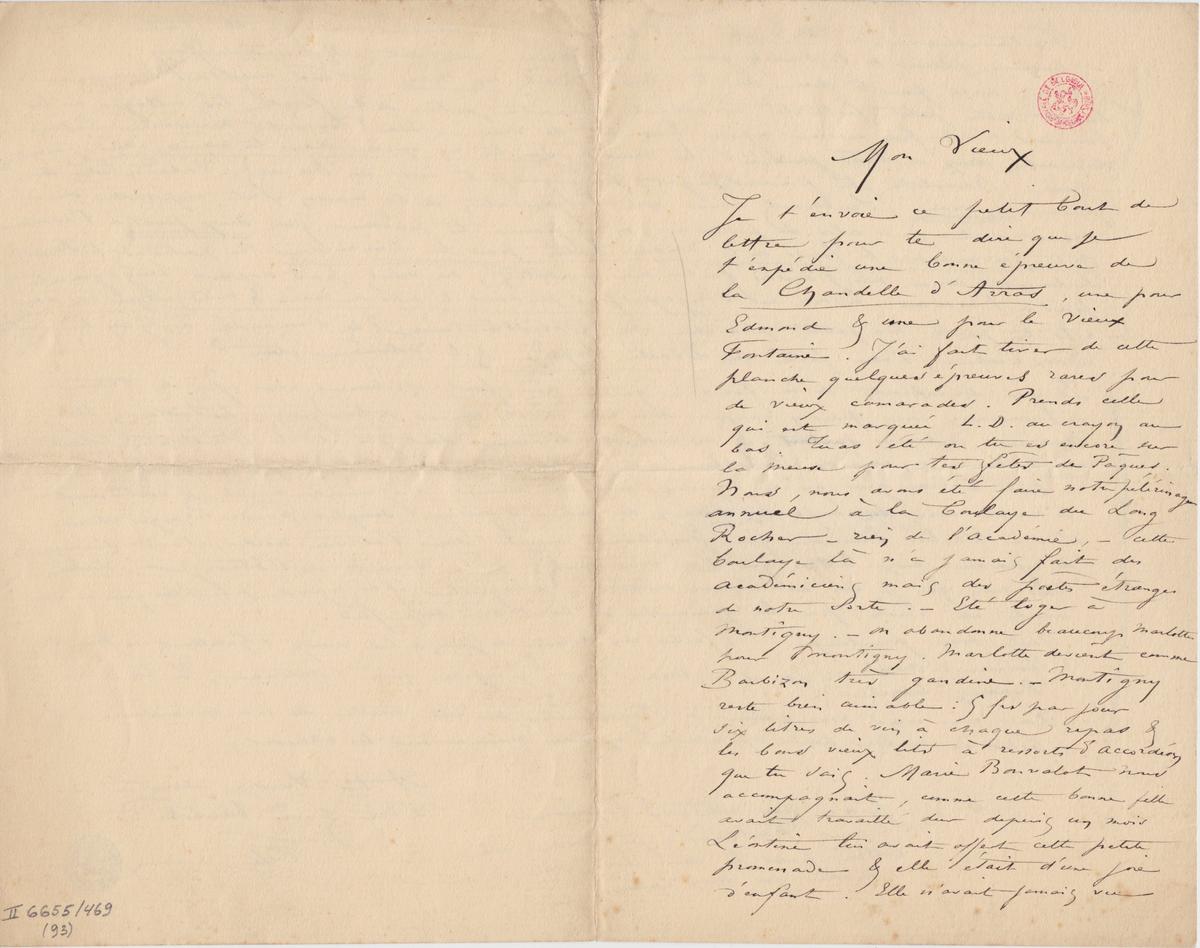 Mon Vieux
Je t'envoie ce petit bout de
lettre pour te dire que je
t'expédie une bonne épreuve de
la Chandelle d'Arras, une pour
Edmond & une pour le Vieux
Fontaine. J'ai fait tirer de cette
planche quelques épreuves rares pour
de vieux camarades. Prends celle
qui est marquée L.D. au crayon au
bas. Tu as été ou tu es encore sur
la Meuse pour tes fêtes de Pâques.
Nous, nous avons été faire notre pélérinage
annuel à la Boulaye du Long
Rocher – rien de l'académie, – cette
boulaye là n'a jamais fait des
académiciens mais des poètes étranges
de notre sorte. – Eté loger à
Montigny. – on abandonne beaucoup Marlotte
pour Montigny. Marlotte devient comme
Barbizon très gandine. – Montigny
reste bien aimable : 5 frs par jour
six litres de vin à chaque repas &
les bons vieux lits à ressorts d'accordéon
que tu sais. Marie Bonvalot nous
accompagnait, comme cette bonne fille
avait travaillé dur depuis un mois
Léontine lui avait offert cette petite
promenade & elle était d'une joie
d'enfant. Elle n'avait jamais vu
II 6655/469
(93)